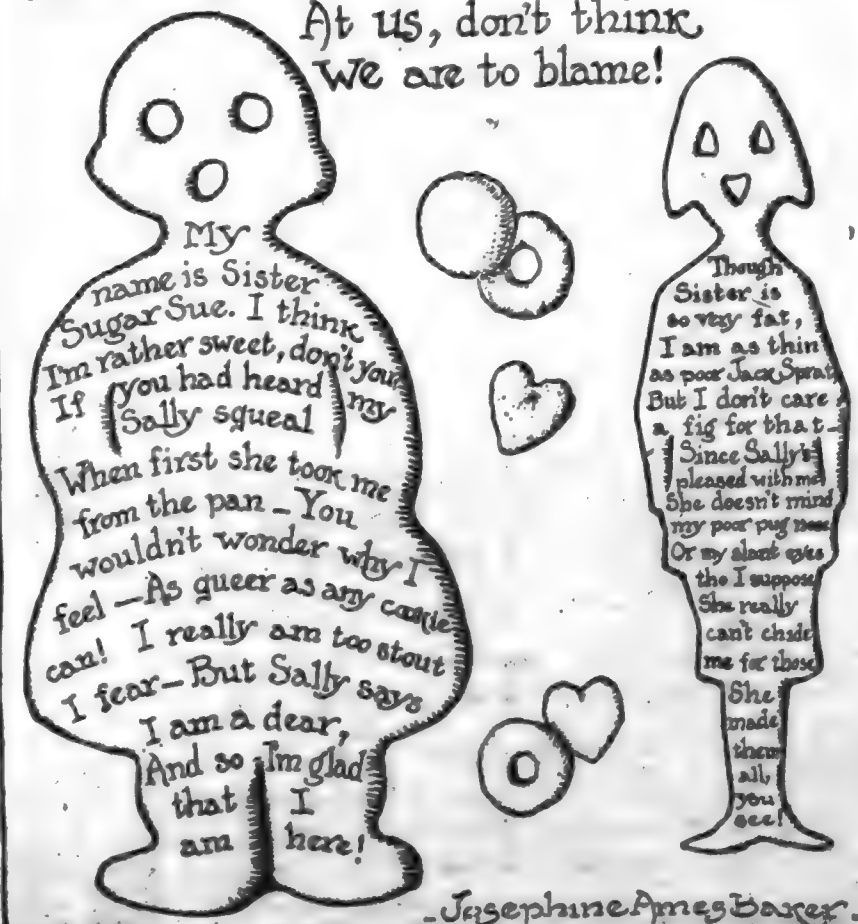 At us, don't think
We are to blame!
My
name is Sister
Sugar Sue. I think
I'm rather sweet, don't you?
If (you had heard) my
Sally squeal
When first she took me
from the pan – You
wouldn't wonder why I
feel – As queer as any cookie
can! I really am too stout
I fear – But Sally says
I am a dear,
And so I'm glad
that I
am here!
Though
Sister is
so very fat,
I am as thin
as poor Jack Sprat,
But I don't care
a fig for that –
Since Sally's
pleased with me
She doesn't mind
my poor pug nose
Or my slant eyes
tho I suppose
She really
can't chide
me for those
She
made
them
all,
you
see!
- Josephine Ames Baker